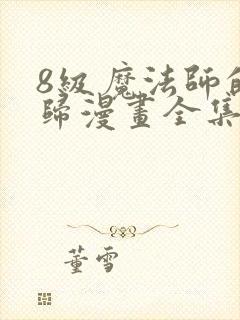 8級魔法師的
歸漫畫全集
董雪